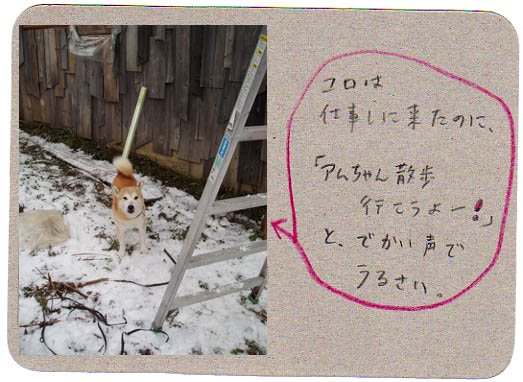 コロは
仕事しに来たのに、
「アムちゃん散歩
行こうよー!」
と、でかい声で
うるさい。